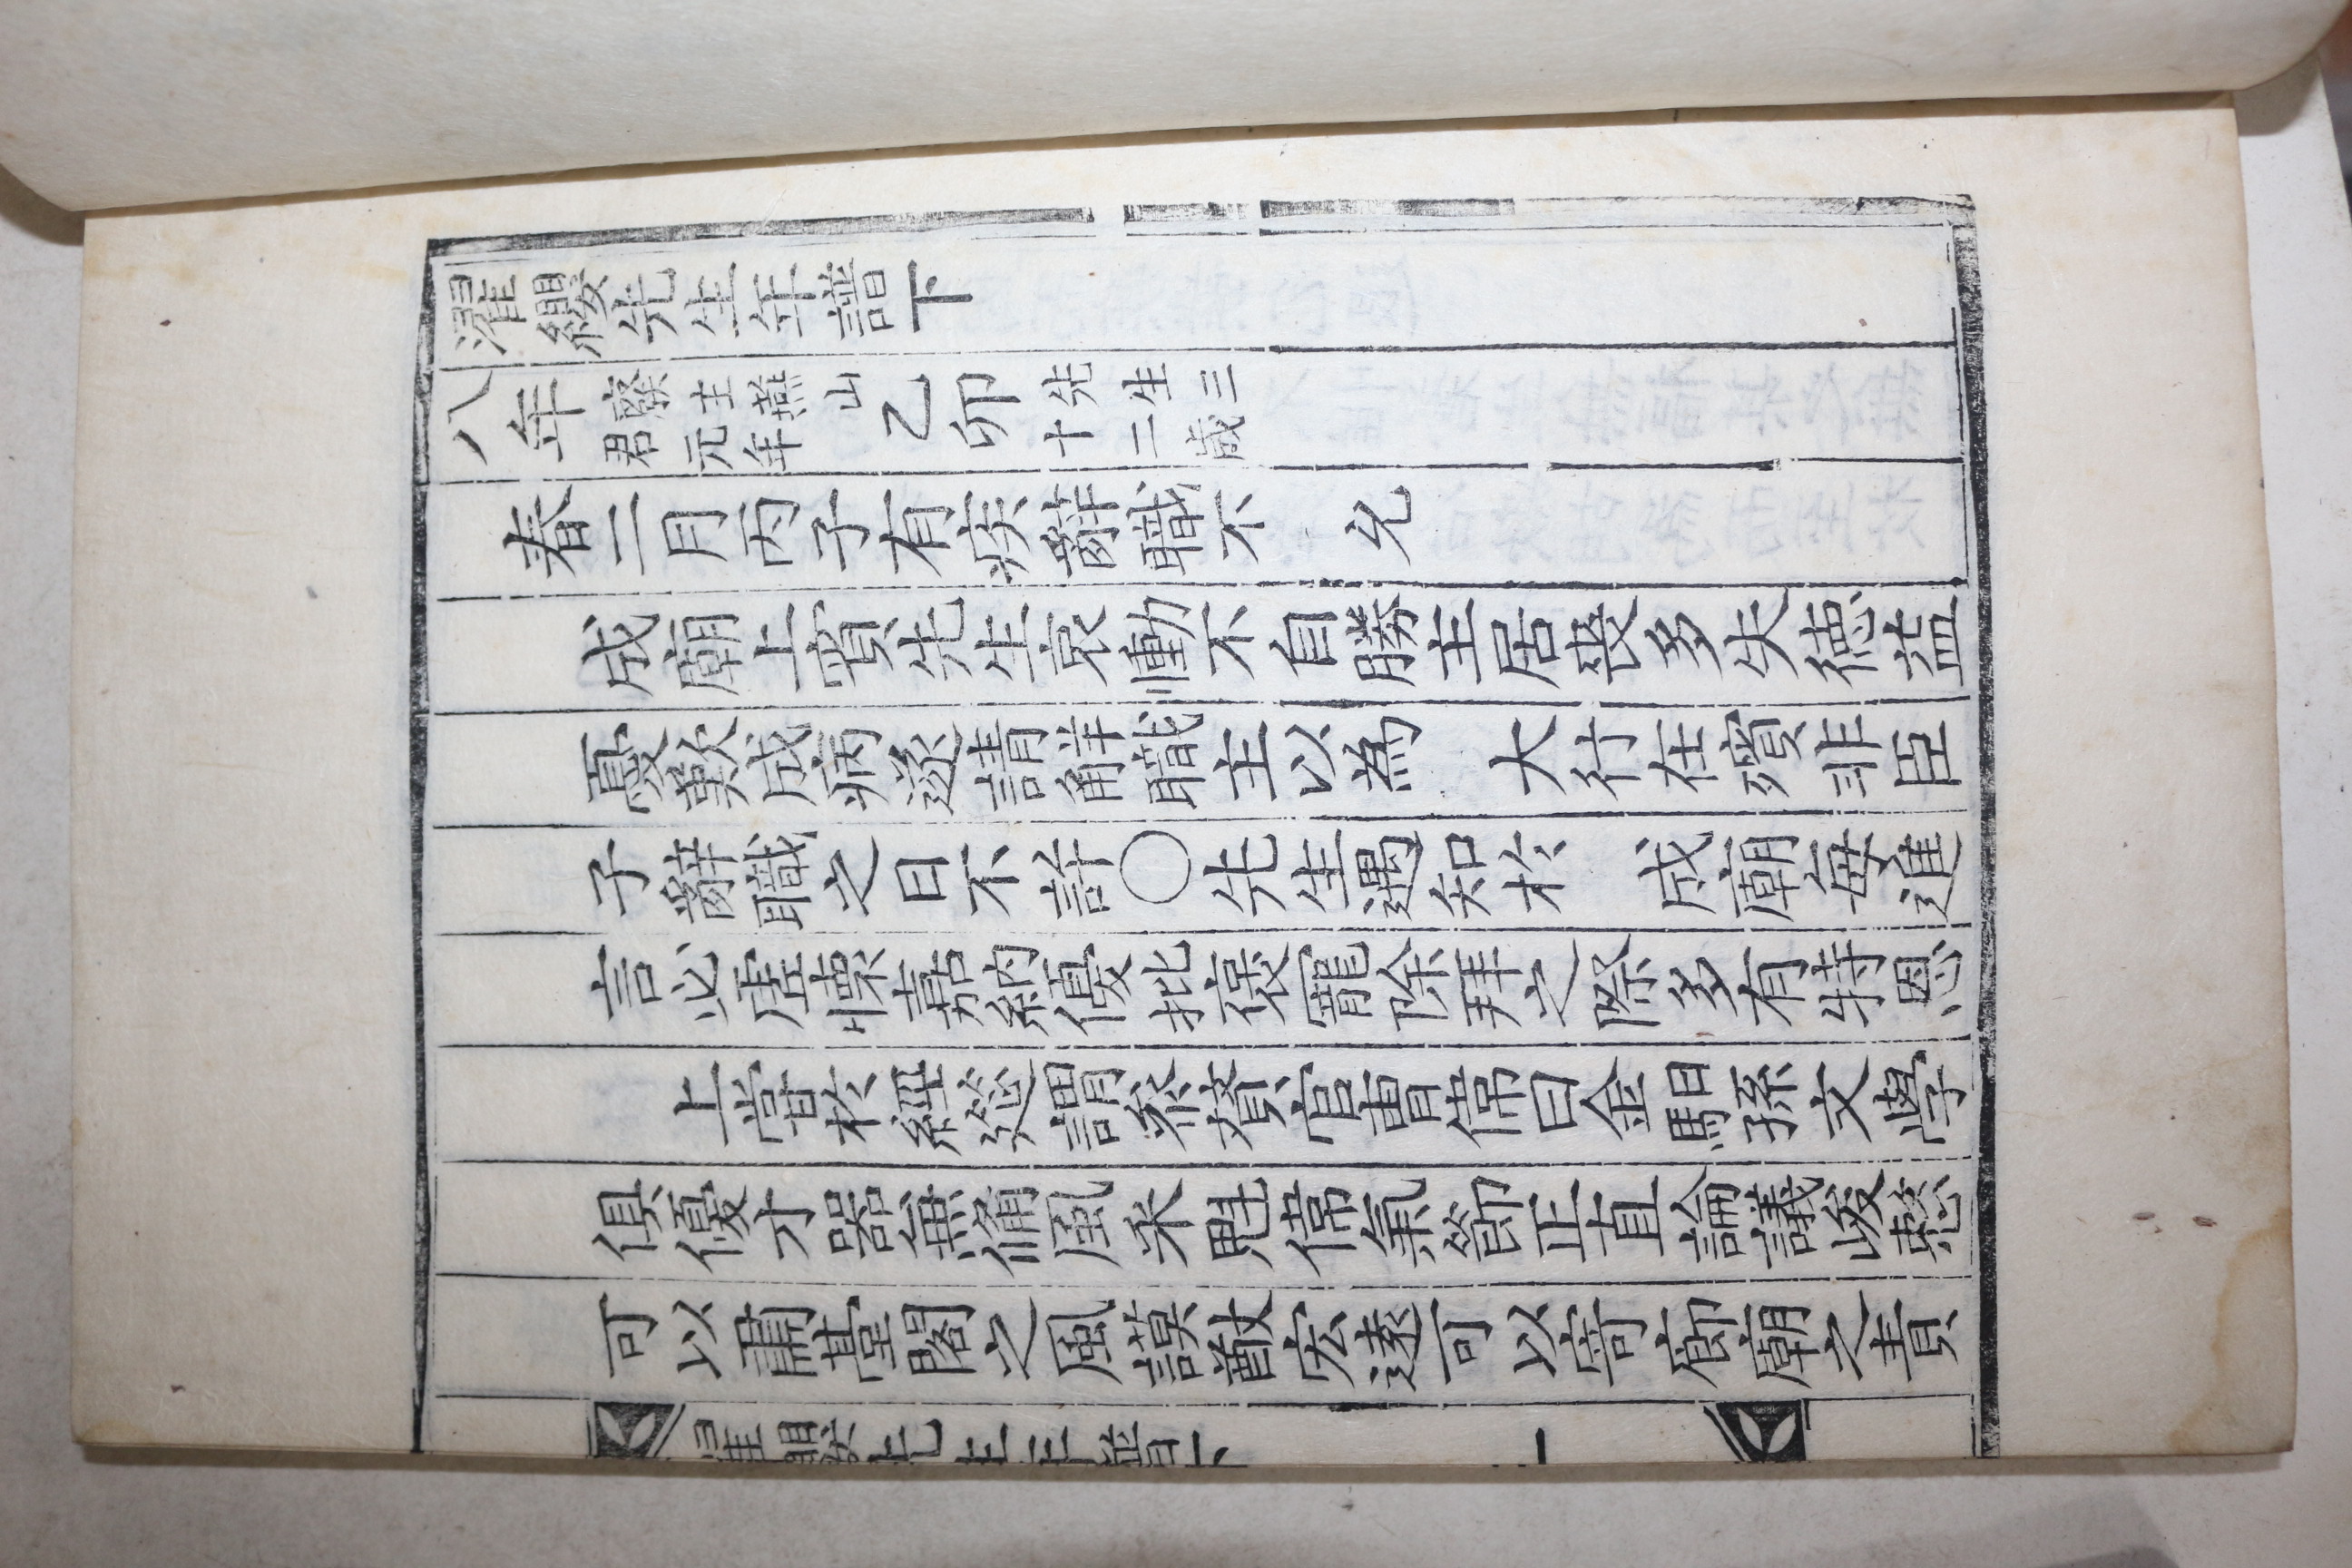 濯纓先生年譜下
八年廢主燕山君元年乙卯先生三十二歲
春二月丙子有疾辭職不 允
成廟上賓先生哀慟不自勝主居喪多失德益
憂歎成病遂請解職主以為 大行在殯非臣
子辭職之日不許○先生遇知於 成廟每進
言必虛懷嘉納優批褒寵除拜之際多有特恩
上嘗於經筵謂參贊官曺偉曰金馹孫文學
俱優才器無俻風采魁偉氣節正直論議峻整
可以肅臺閣之風謨猷宏遠可以寄廊廟之責
濯纓先生年譜下 一